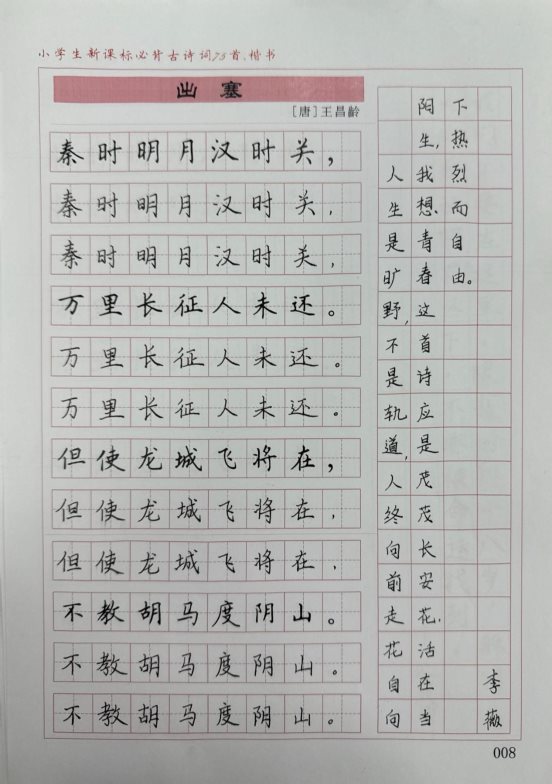 小学生新课标必背古诗词75首·楷书
出塞
[唐]王昌龄
秦时明月汉时关，
秦时明月汉时关，
秦时明月汉时关，
万里长征人未还。
万里长征人未还。
万里长征人未还。
但使龙城飞将在，
但使龙城飞将在，
但使龙城飞将在，
不教胡马度阴山。
不教胡马度阴山。
不教胡马度阴山。
人生是旷野，不是轨道，人终向前走花自向
阳生，我想青春这首诗应是茂茂长安花，活在当
下热烈而自由。
李薇
008